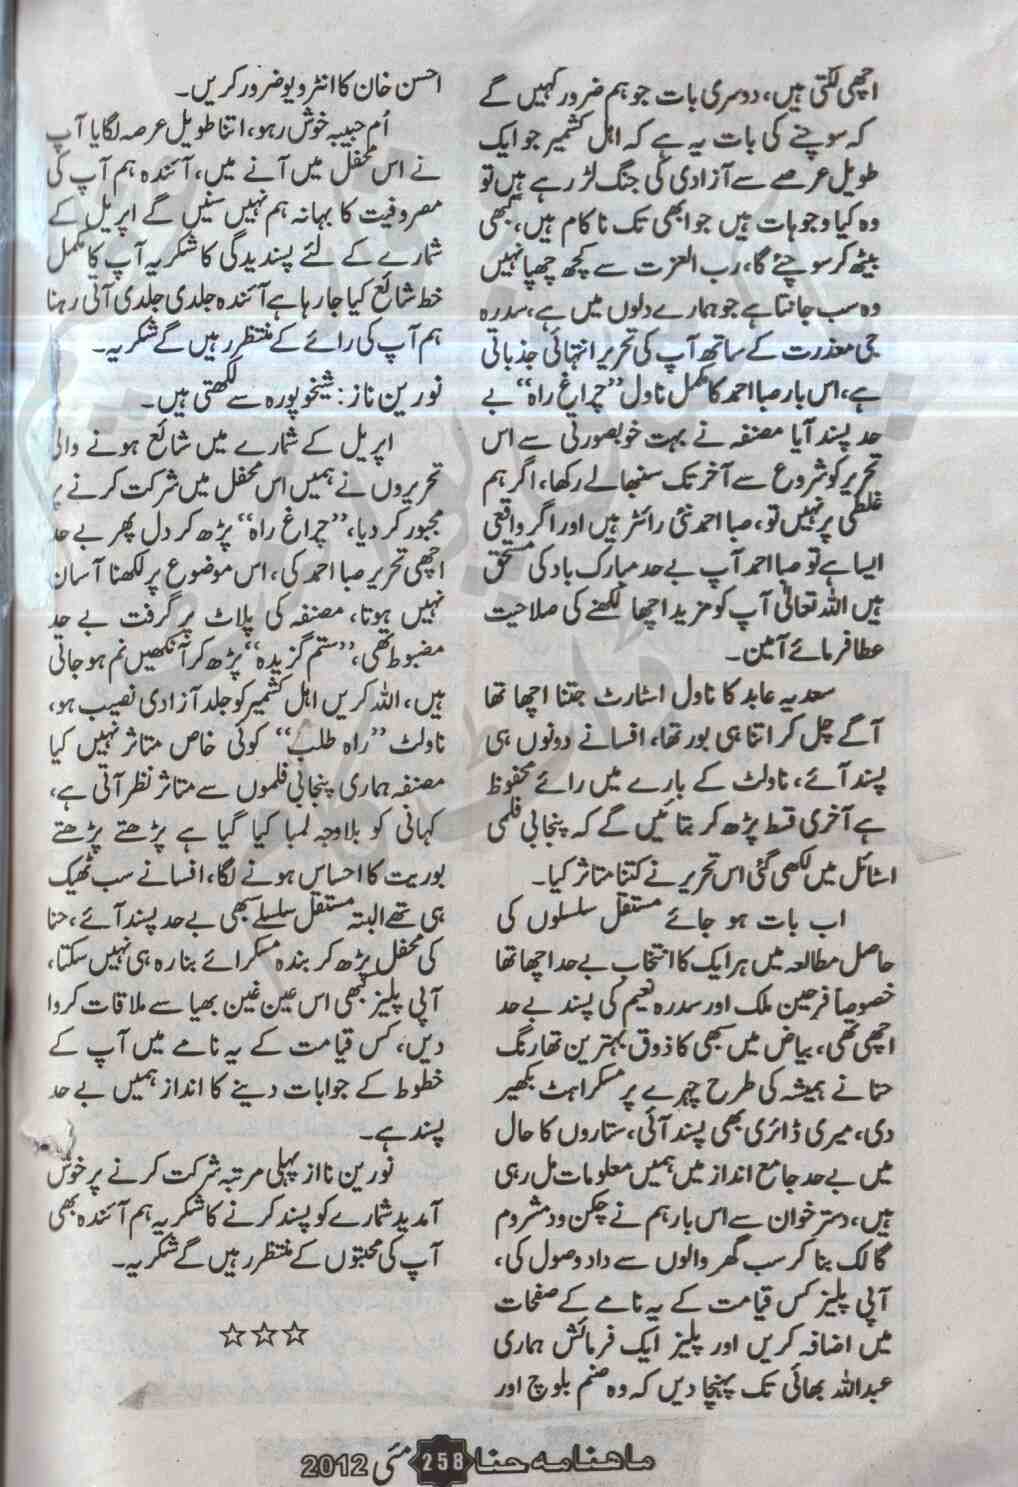 اچھی لگتی ہیں، دوسری بات جو ہم ضرور کہیں گے
کہ سوچنے کی بات یہ ہے کہ اہل کشمیر جو ایک
طویل عرصے سے آزادی کی جنگ لڑ رہے ہیں تو
وہ کیا وجوہات ہیں جو ابھی تک ناکام ہیں، کبھی
بیٹھ کر سوچئے گا، رب العزت سے کچھ چھپا نہیں
وہ سب جانتا ہے جو ہمارے دلوں میں ہے، سدرہ
جی معذرت کے ساتھ آپ کی تحریر انتہائی جذباتی
ہے، اس بار صبا احمد کا مکمل ناول ”چراغ راہ“ بے
حد پسند آیا مصنفہ نے بہت خوبصورتی سے اس
تحریر کو شروع سے آخر تک سنبھالے رکھا، اگر ہم
غلطی پر نہیں تو، صبا احمد نئی رائٹر ہیں اور اگر واقعی
ایسا ہے تو صبا احمد آپ بے حد مبارک باد کی مستحق
ہیں اللہ تعالیٰ آپ کو مزید اچھا لکھنے کی صلاحیت
عطا فرمائے آمین۔
سعدیہ عابد کا ناول اسٹارٹ جتنا اچھا تھا
آگے چل کر اتنا ہی بور تھا، افسانے دونوں ہی
پسند آئے، ناولٹ کے بارے میں رائے محفوظ
ہے آخری قسط پڑھ کر بتائیں گے کہ پنجابی فلمی
اسٹائل میں لکھی گئی اس تحریر نے کتنا متاثر کیا۔
اب بات ہو جائے مستقل سلسلوں کی
حاصل مطالعہ میں ہر ایک کا انتخاب بے حد اچھا تھا
خصوصاً فرحین ملک اور سدرہ نعیم کی پسند بے حد
اچھی تھی، بیاض میں سبھی کا ذوق بہترین تھا رنگ
حنا نے ہمیشہ کی طرح چہرے پر مسکراہٹ بکھیر
دی، میری ڈائری بھی پسند آئی، ستاروں کا حال
میں بے حد جامع انداز میں ہمیں معلومات مل رہی
ہیں، دستر خوان سے اس بار ہم نے چکن ود مشروم
گالک بنا کر سب گھر والوں سے داد وصول کی،
آپی پلیز کس قیامت کے یہ نامے کے صفحات
میں اضافہ کریں اور پلیز ایک فرمائش ہماری
عبداللہ بھائی تک پہنچا دیں کہ وہ صنم بلوچ اور
احسن خان کا انٹرویو ضرور کریں۔
اُم حبیبہ خوش رہو، اتنا طویل عرصہ لگایا آپ
نے اس محفل میں آنے میں، آئندہ ہم آپ کی
مصروفیت کا بہانہ ہم نہیں سنیں گے اپریل کے
شمارے کے لئے پسندیدگی کا شکریہ آپ کا مکمل
خط شائع کیا جا رہا ہے آئندہ جلدی جلدی آتی رہنا
ہم آپ کی رائے کے منتظر رہیں گے شکریہ۔
نورین ناز: شیخوپورہ سے لکھتی ہیں۔
اپریل کے شمارے میں شائع ہونے والی
تحریروں نے ہمیں اس محفل میں شرکت کرنے پر
مجبور کر دیا، ”چراغ راہ“ پڑھ کر دل پھر بے حد
اچھی تحریر صبا احمد کی، اس موضوع پر لکھنا آسان
نہیں ہوتا، مصنفہ کی پلاٹ پر گرفت بے حد
مضبوط تھی، ”ستم گزیدہ“ پڑھ کر آنکھیں نم ہو جاتی
ہیں، اللہ کریں اہل کشمیر کو جلد آزادی نصیب ہو،
ناولٹ ”راہ طلب“ کوئی خاص متاثر نہیں کیا
مصنفہ ہماری پنجابی فلموں سے متاثر نظر آتی ہے،
کہانی کو بلاوجہ لمبا کیا گیا ہے پڑھتے پڑھتے
بوریت کا احساس ہونے لگا، افسانے سب ٹھیک
ہی تھے البتہ مستقل سلسلے سبھی بے حد پسند آئے، حنا
کی محفل پڑھ کر بندہ مسکرائے بنا رہ ہی نہیں سکتا،
آپی پلیز کبھی اس عین غین بھیا سے ملاقات کروا
دیں، کس قیامت کے یہ نامے میں آپ کے
خطوط کے جوابات دینے کا انداز ہمیں بے حد
پسند ہے۔
نورین ناز پہلی مرتبہ شرکت کرنے پر خوش
آمدید شمارے کو پسند کرنے کا شکریہ ہم آئندہ بھی
آپ کی محبتوں کے منتظر رہیں گے شکریہ۔
☆☆☆
ماہنامہ حنا 258 مئی 2012